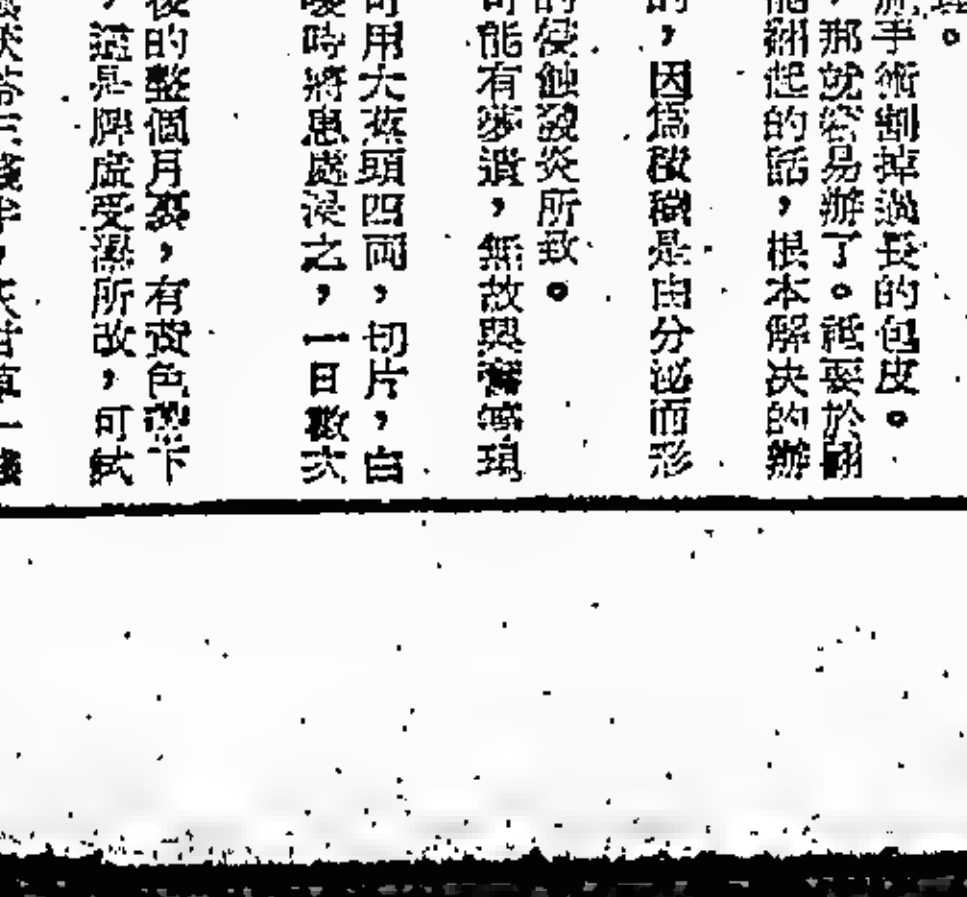 。
手術割掉過長的包皮。
，那就容易辦了。祗要於翻
翻起的話，根本解決的辦
，因為 是由分泌而形
的侵蝕發炎所致。
可能有夢遺，無故興奮等現
可用大蒜頭四両，切片，白
時將患處浸之，一日數次
後的整個月裏，有黃色帶下
，這是脾虛受濕所故，可試